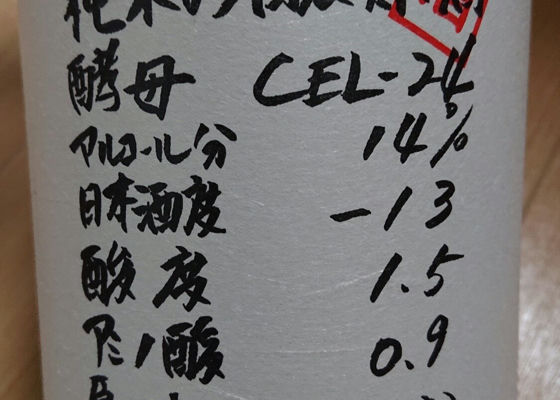 酵母 CEL-24
アルコール分 14%
日本酒度 -13
酸度 1.5
アミノ酸 0.9